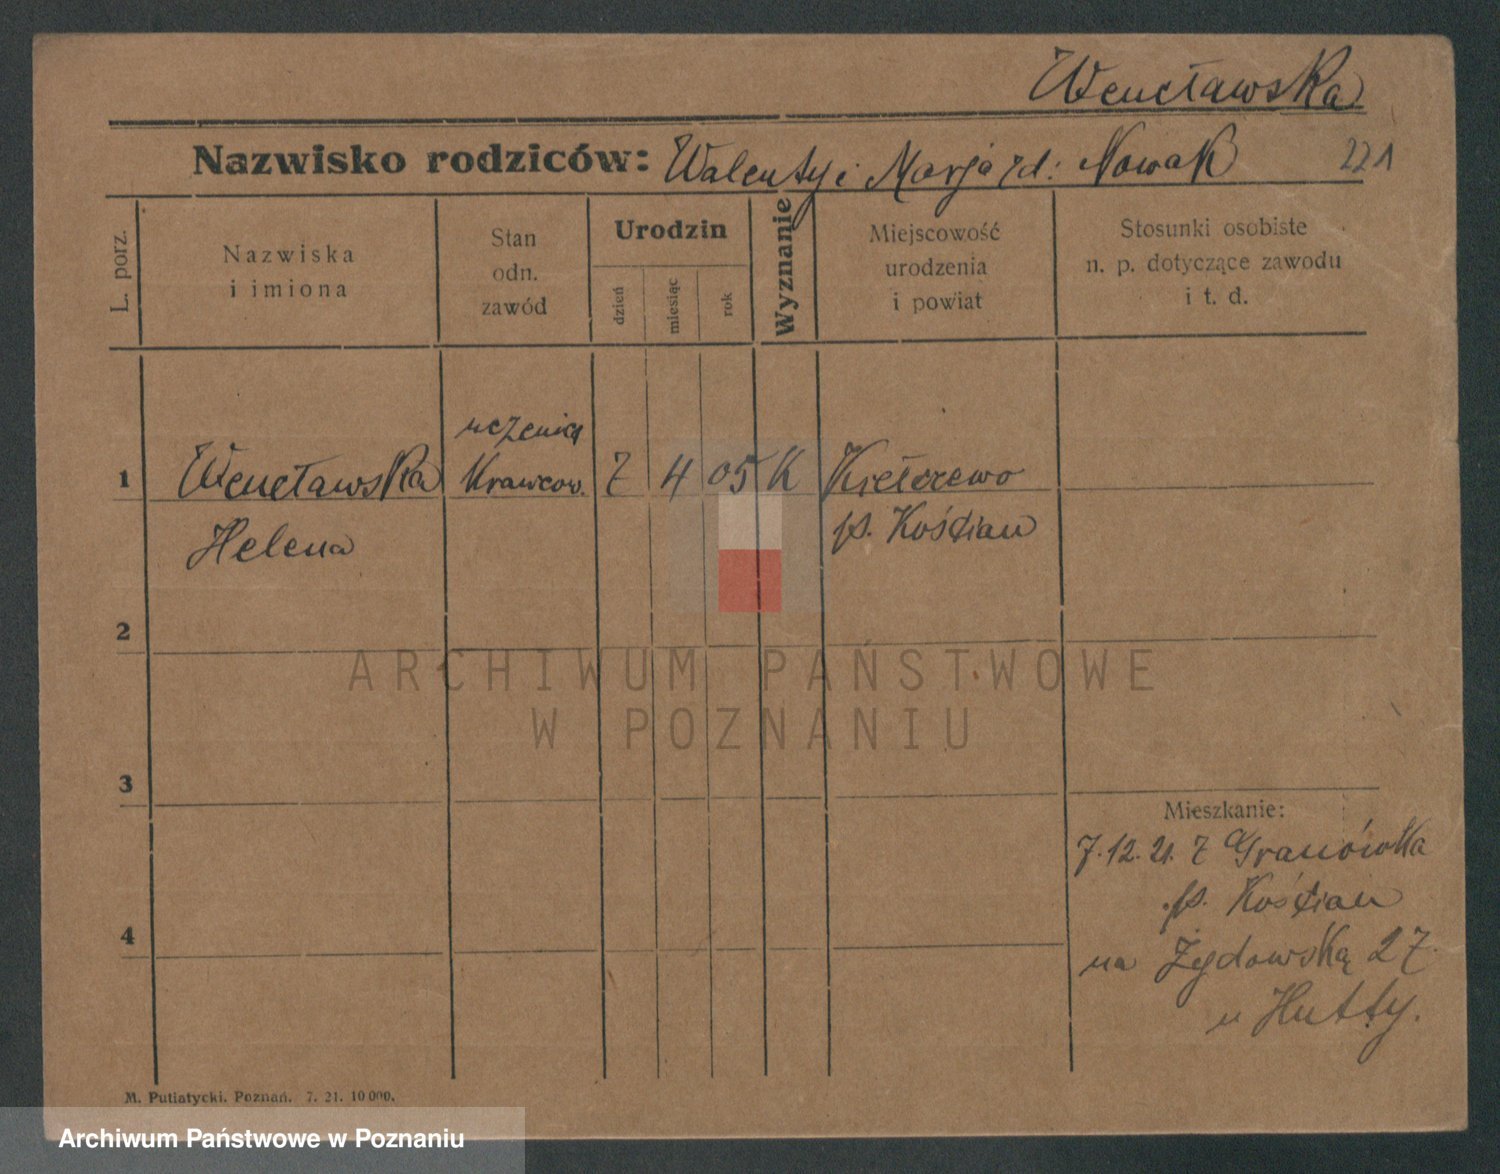 Wencławska
Nazwisko rodziców: Walenty i Marja zd: Nowak 221
L. porz.
Nazwiska
i imiona
Stan
odn.
zawód
Urodzin
dzień
miesiąc
rok
Wyznanie
Miejscowość
urodzenia
i powiat
Stosunki osobiste
n. p. dotyczące zawodu
i t. d.
uczenica
1 Wencławska Krawcow. 7 4 05 K Kiełczewo
Helena p. Kościan
2
ARCHIWUM PAŃSTWOWE
W POZNANIU
3
Mieszkanie:
7.12.21. z Granówka
p. Kościan
4
na Żydowską 27.
u Hutty.
M. Putiatycki. Poznań. 7. 21. 10 000.
Archiwum Państwowe w Poznaniu